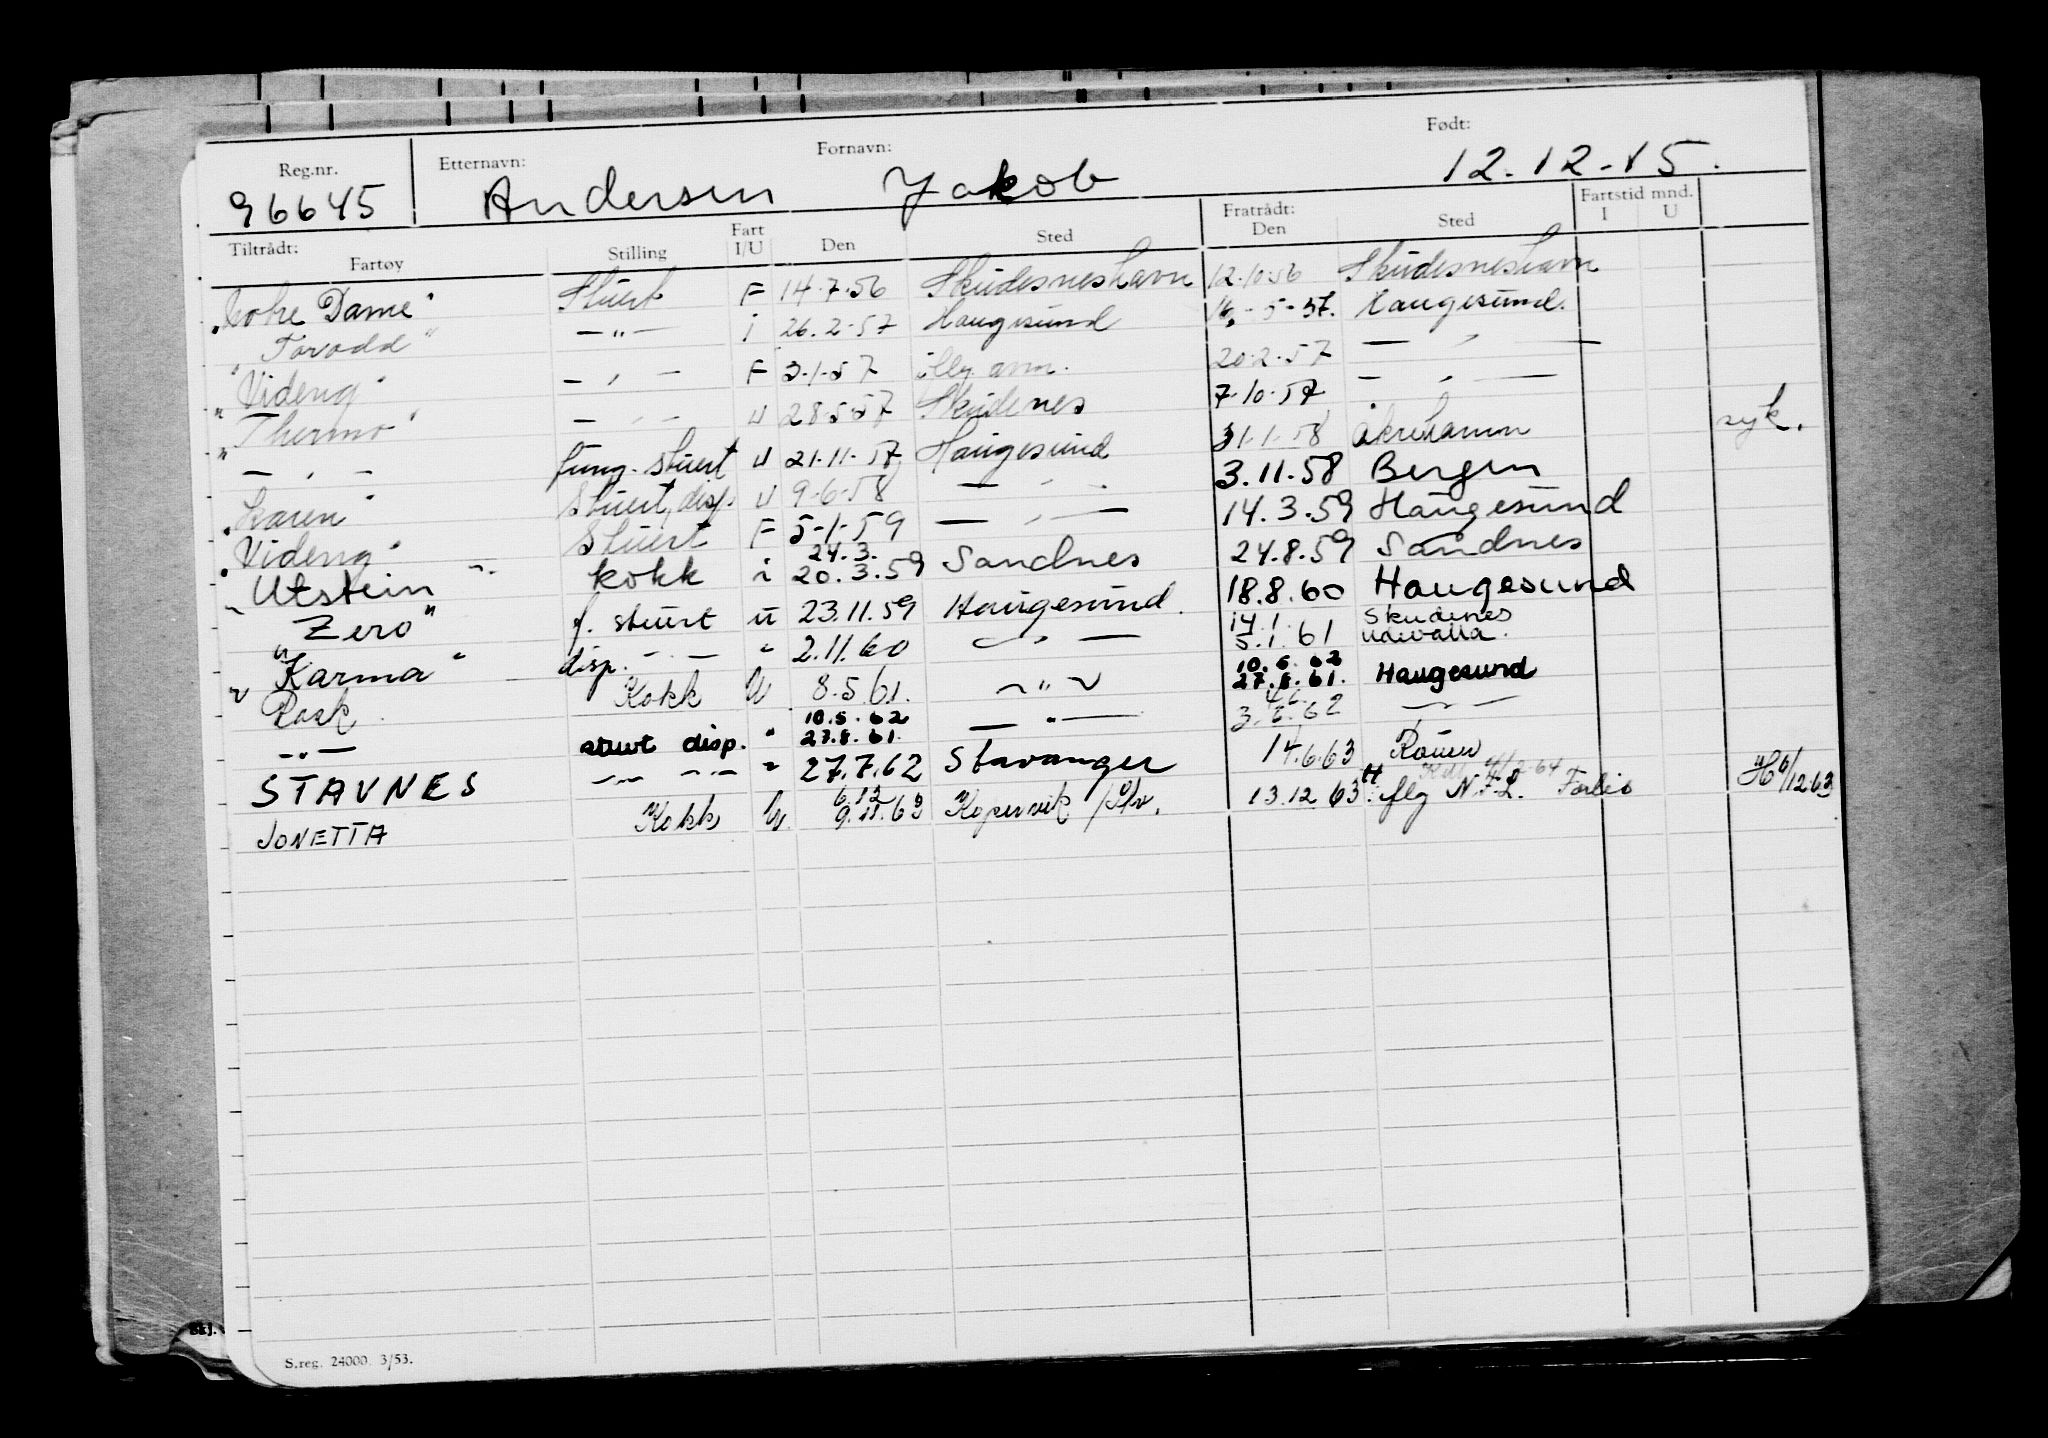 Reg.nr. Etternavn: Fornavn: Født:
96645 Andersen Jakob 12.12.15.
Tiltrådt: Fratrådt: Fartstid mnd.
Fartøy Stilling Fart I/U Den Sted Den Sted I U
Dame" Stuert F 14.7.56 Skudesneshavn 12.10.56 Skudesneshavn
"Torodd" —"— i 26.2.57 Haugesund 16.-5-57. Haugesund.
"Videng" — " — F 3.1.57 20.2.57 — " —
"Thermo" — " — U 28.5.57 Skudenes 7.10.57 — " —
— " — fung. stuert U 21.11.57 Haugesund 31.1.58 Åkrehamn syk.
"Karen" Stuert, disp. U 9.6.58 — " — 3.11.58 Bergen
"Videng" Stuert F 5.1.59 — " — 14.3.59 Haugesund
"Utstein" kokk i 24.3. 20.3.59 Sandnes 24.8.59 Sandnes
"Zero" f. stuert u 23.11.59 Haugesund. 18.8.60 Haugesund
"Karma" disp. — " — " 2.11.60 — " — 14.1. 5.1.61 Skudenes Udevalla.
Rask Kokk U 8.5.61. — " — 10.5.62 27.8.61. Haugesund
— " — stuert disp. " 10.5.62 27.8.61. — " — 3.6.62 — " —
STAVNES — " — — " — " 27.7.62 Stavanger 14.6.63 Rouen
JONETTA Kokk U. 6.12 9.11.63 Kopervik 13.12.63 H. flg N.F.L. H 6/12.63
S.reg. 24000. 3/53.